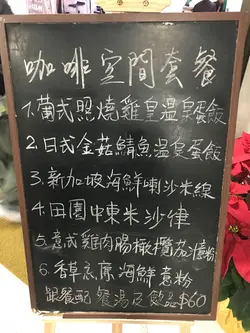 咖啡空間套餐
1.葡式照燒雞皇溫泉蛋飯
2.日式金菇鯖魚溫泉蛋飯
3.新加坡海鮮喇沙米線
4.田園中東米沙律
5.意式雞肉腸橄欖灰意粉
6.香草忌廉海鮮意粉
跟餐配 餐湯及飲品$60